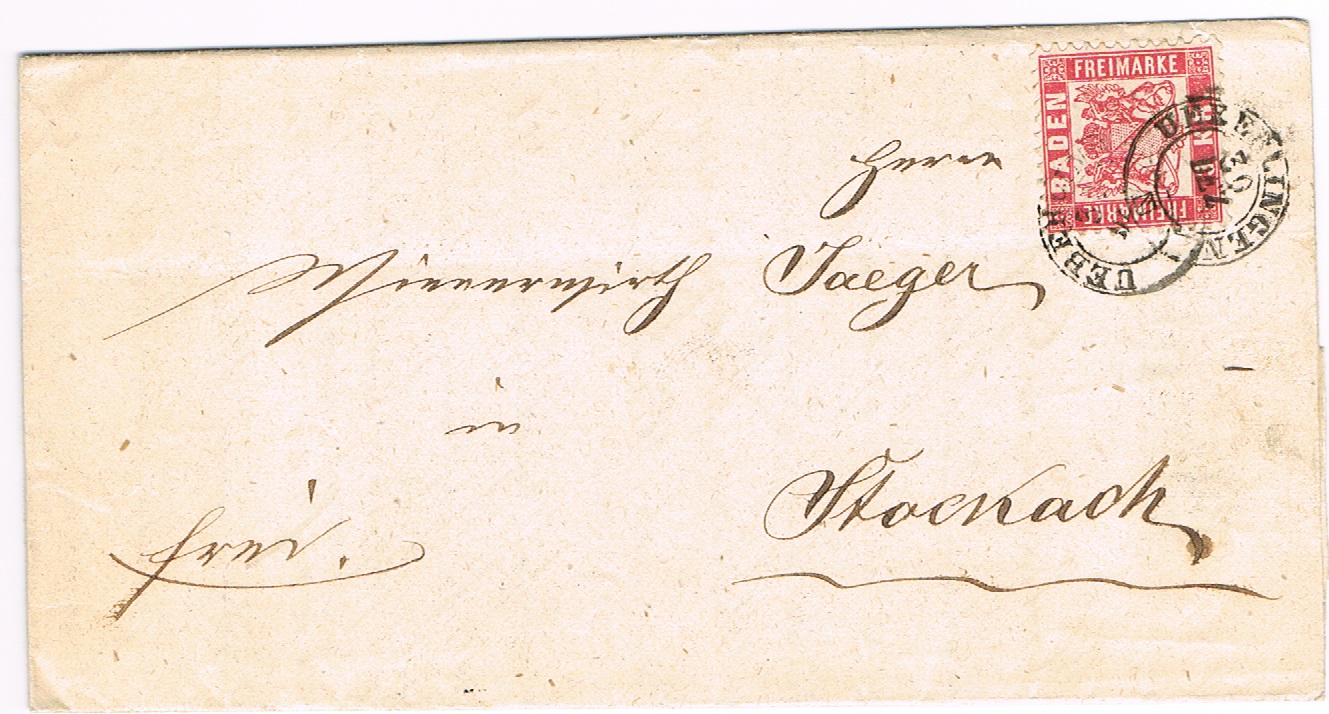 FREIMARKE
BADEN
FREIMARKE
UEBERLINGEN
30
UEBER
Herrn
Jaeger
in
Stockach
frei.